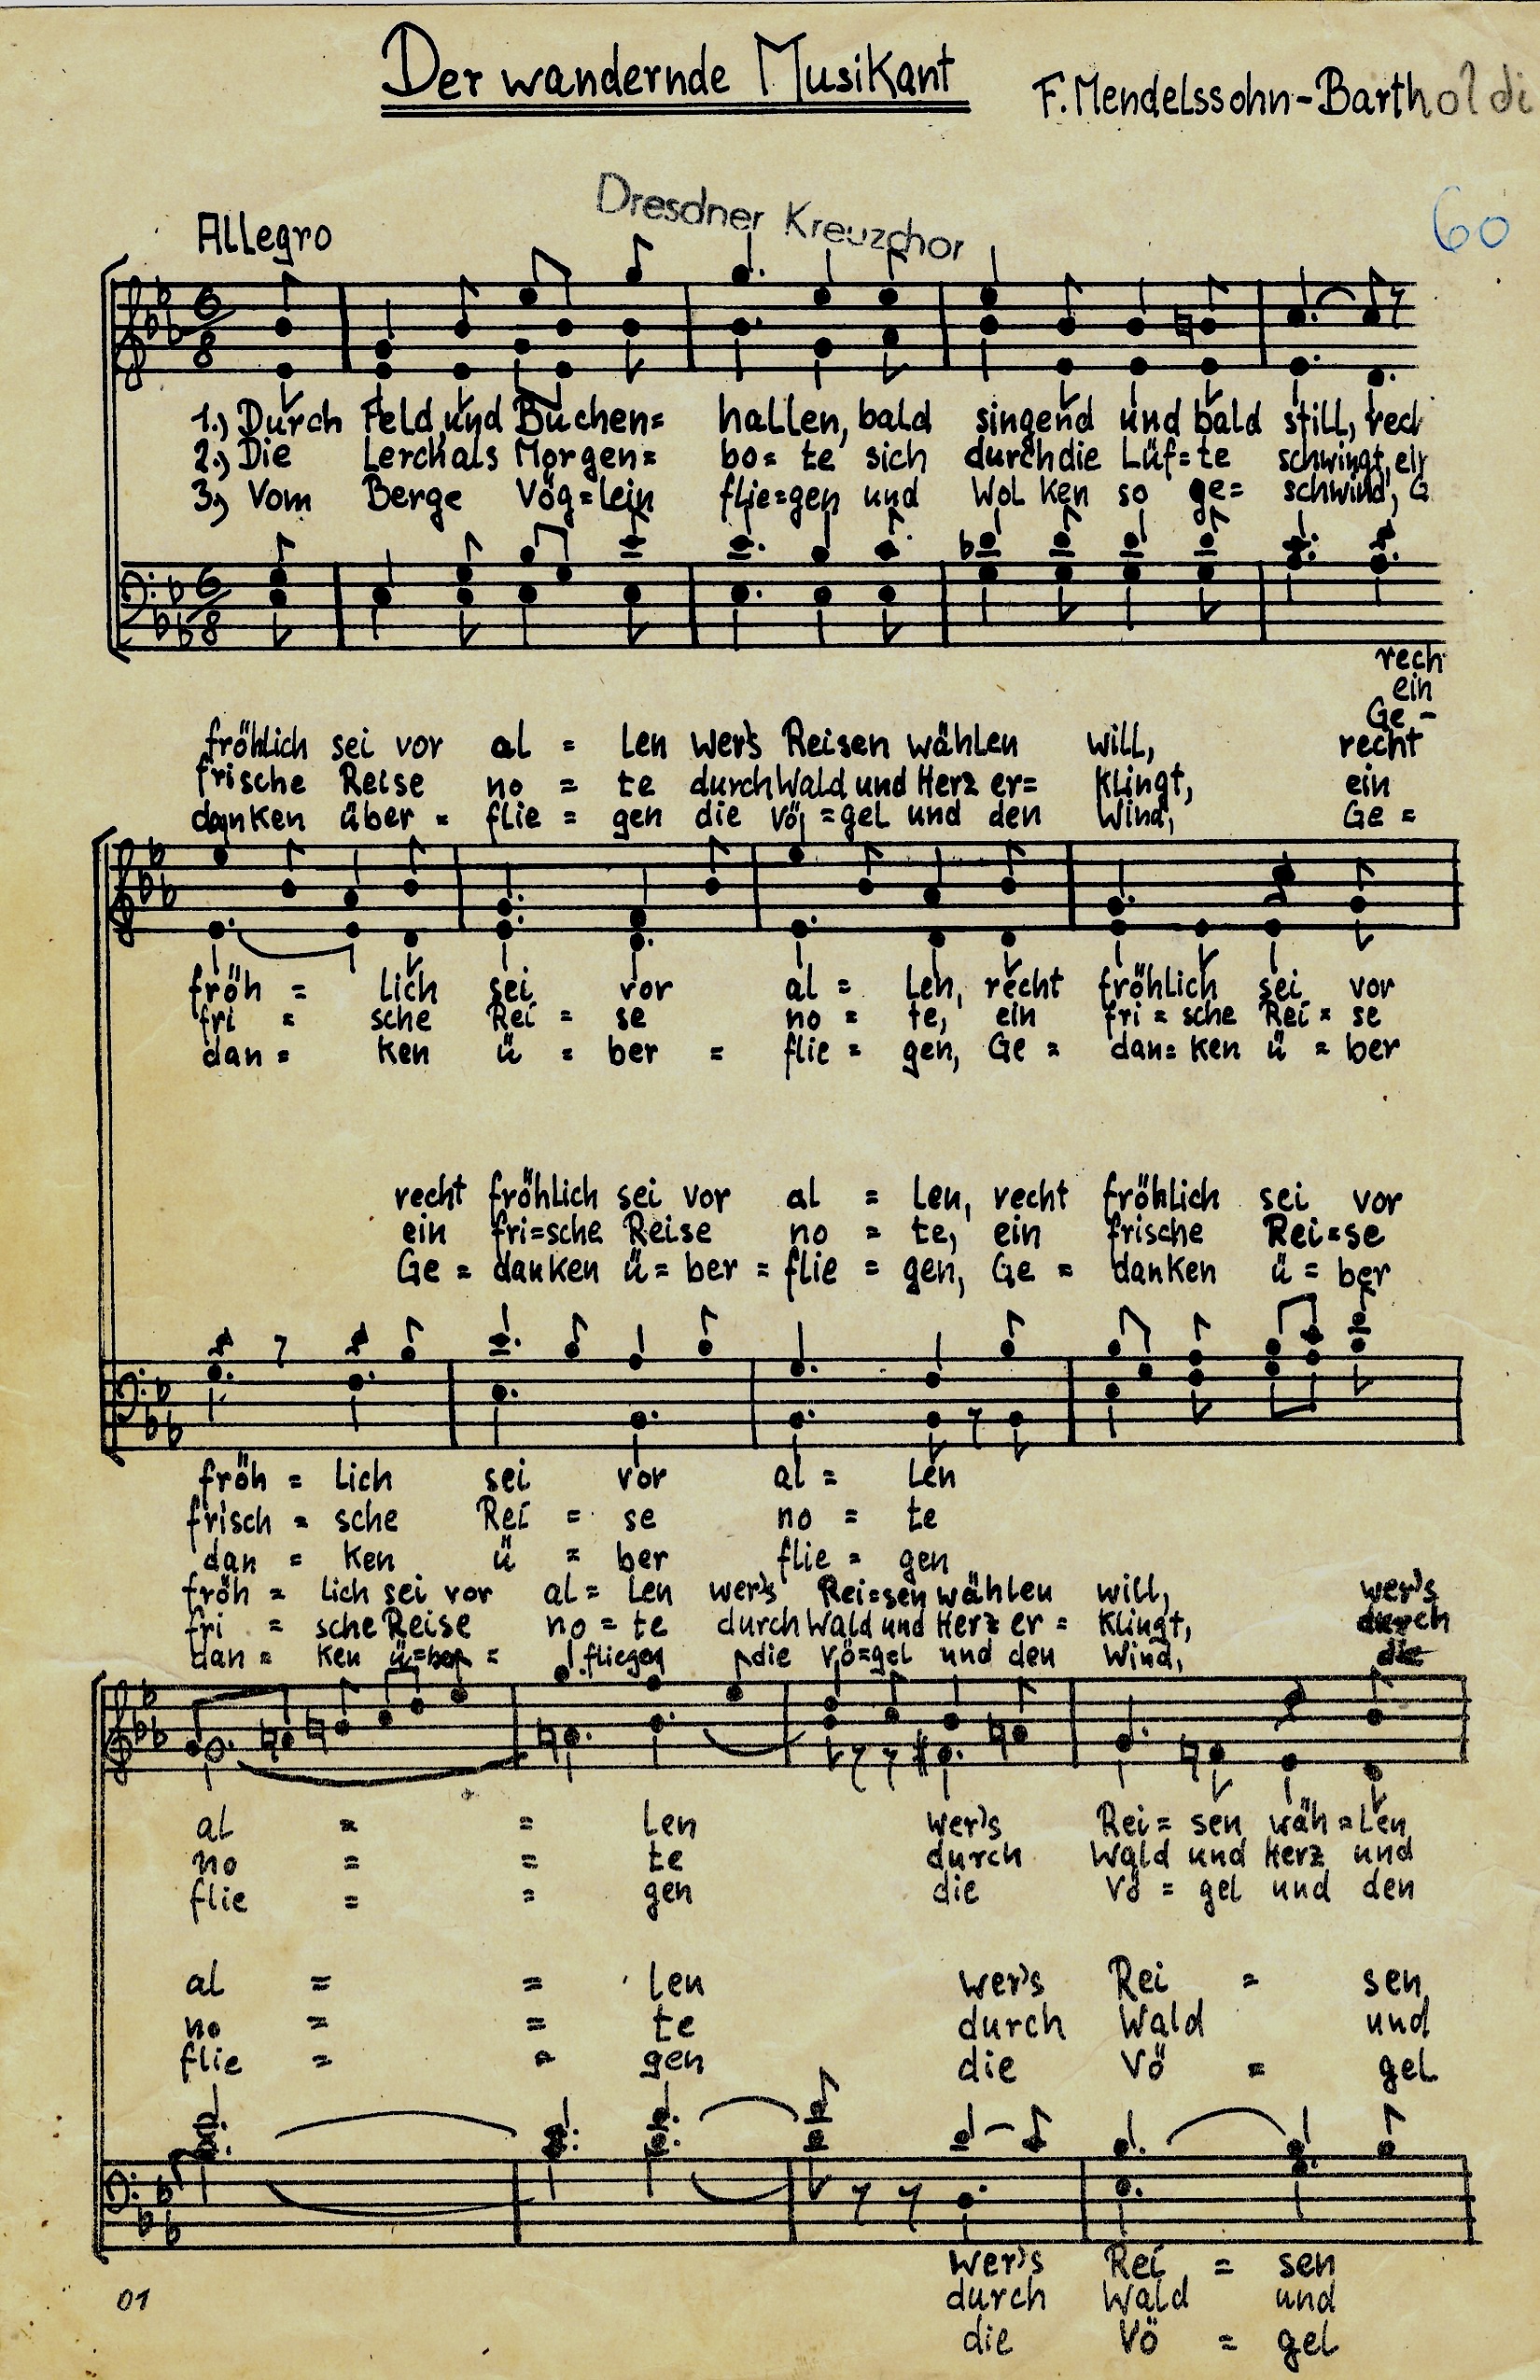 Der wandernde Musikant
F. Mendelssohn-Bartholdi
Dresdner Kreuzchor
60
Allegro
6/8
1.) Durch Feld und Buchen= hallen, bald singend und bald still,
2.) Die Lerch als Morgen= bo= te sich durch die Lüf=te schwingt,
3.) Vom Berge Vög=lein flie=gen und Wol ken so ge= schwind, G
6/8
rech
ein
Ge -
fröhlich sei vor al = len wer's Reisen wählen will, recht
frische Reise no = te durch Wald und Herz er= klingt, ein
danken über = flie = gen die Vö =gel und den Wind, Ge =
fröh = lich sei vor al = len, recht fröhlich sei vor
fri = sche Rei = se no = te, ein fri = sche Rei = se
dan = ken ü = ber = flie = gen, Ge = dan= ken ü = ber
recht fröhlich sei vor al = len, recht fröhlich sei vor
ein fri=sche Reise no = te, ein frische Rei=se
Ge = danken ü = ber = flie = gen, Ge = danken ü = ber
fröh = lich sei vor al = len
frisch = sche Rei = se no = te
dan = ken ü = ber flie = gen
fröh = lich sei vor al = len wer's Rei=sen wählen will, wer's
fri = sche Reise no = te durch Wald und Herz er = klingt, durch
dan = ken ü=ber = fliegen die Vö=gel und den Wind, die
al = = len wer's Rei = sen wäh =len
no = = te durch Wald und Herz und
flie = = gen die Vö = gel und den
al = = len wer's Rei = sen
no = = te durch Wald und
flie = = gen die Vö = gel
wer's Rei = sen
durch Wald und
die Vö = gel
01